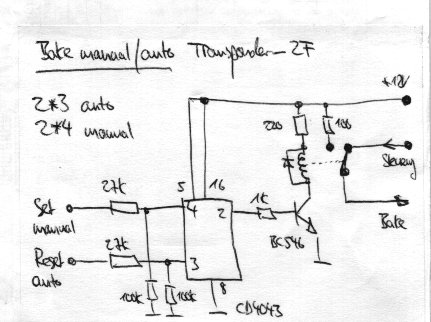 Bake manual/auto Transponder-2F
+12V
2*3 auto
2*4 manual
220
100
Steuerg
5
16
27k
Set
manual
4
2
1k
Bake
BC546
27k
Reset
auto
3
8
100k
100k
CD4043